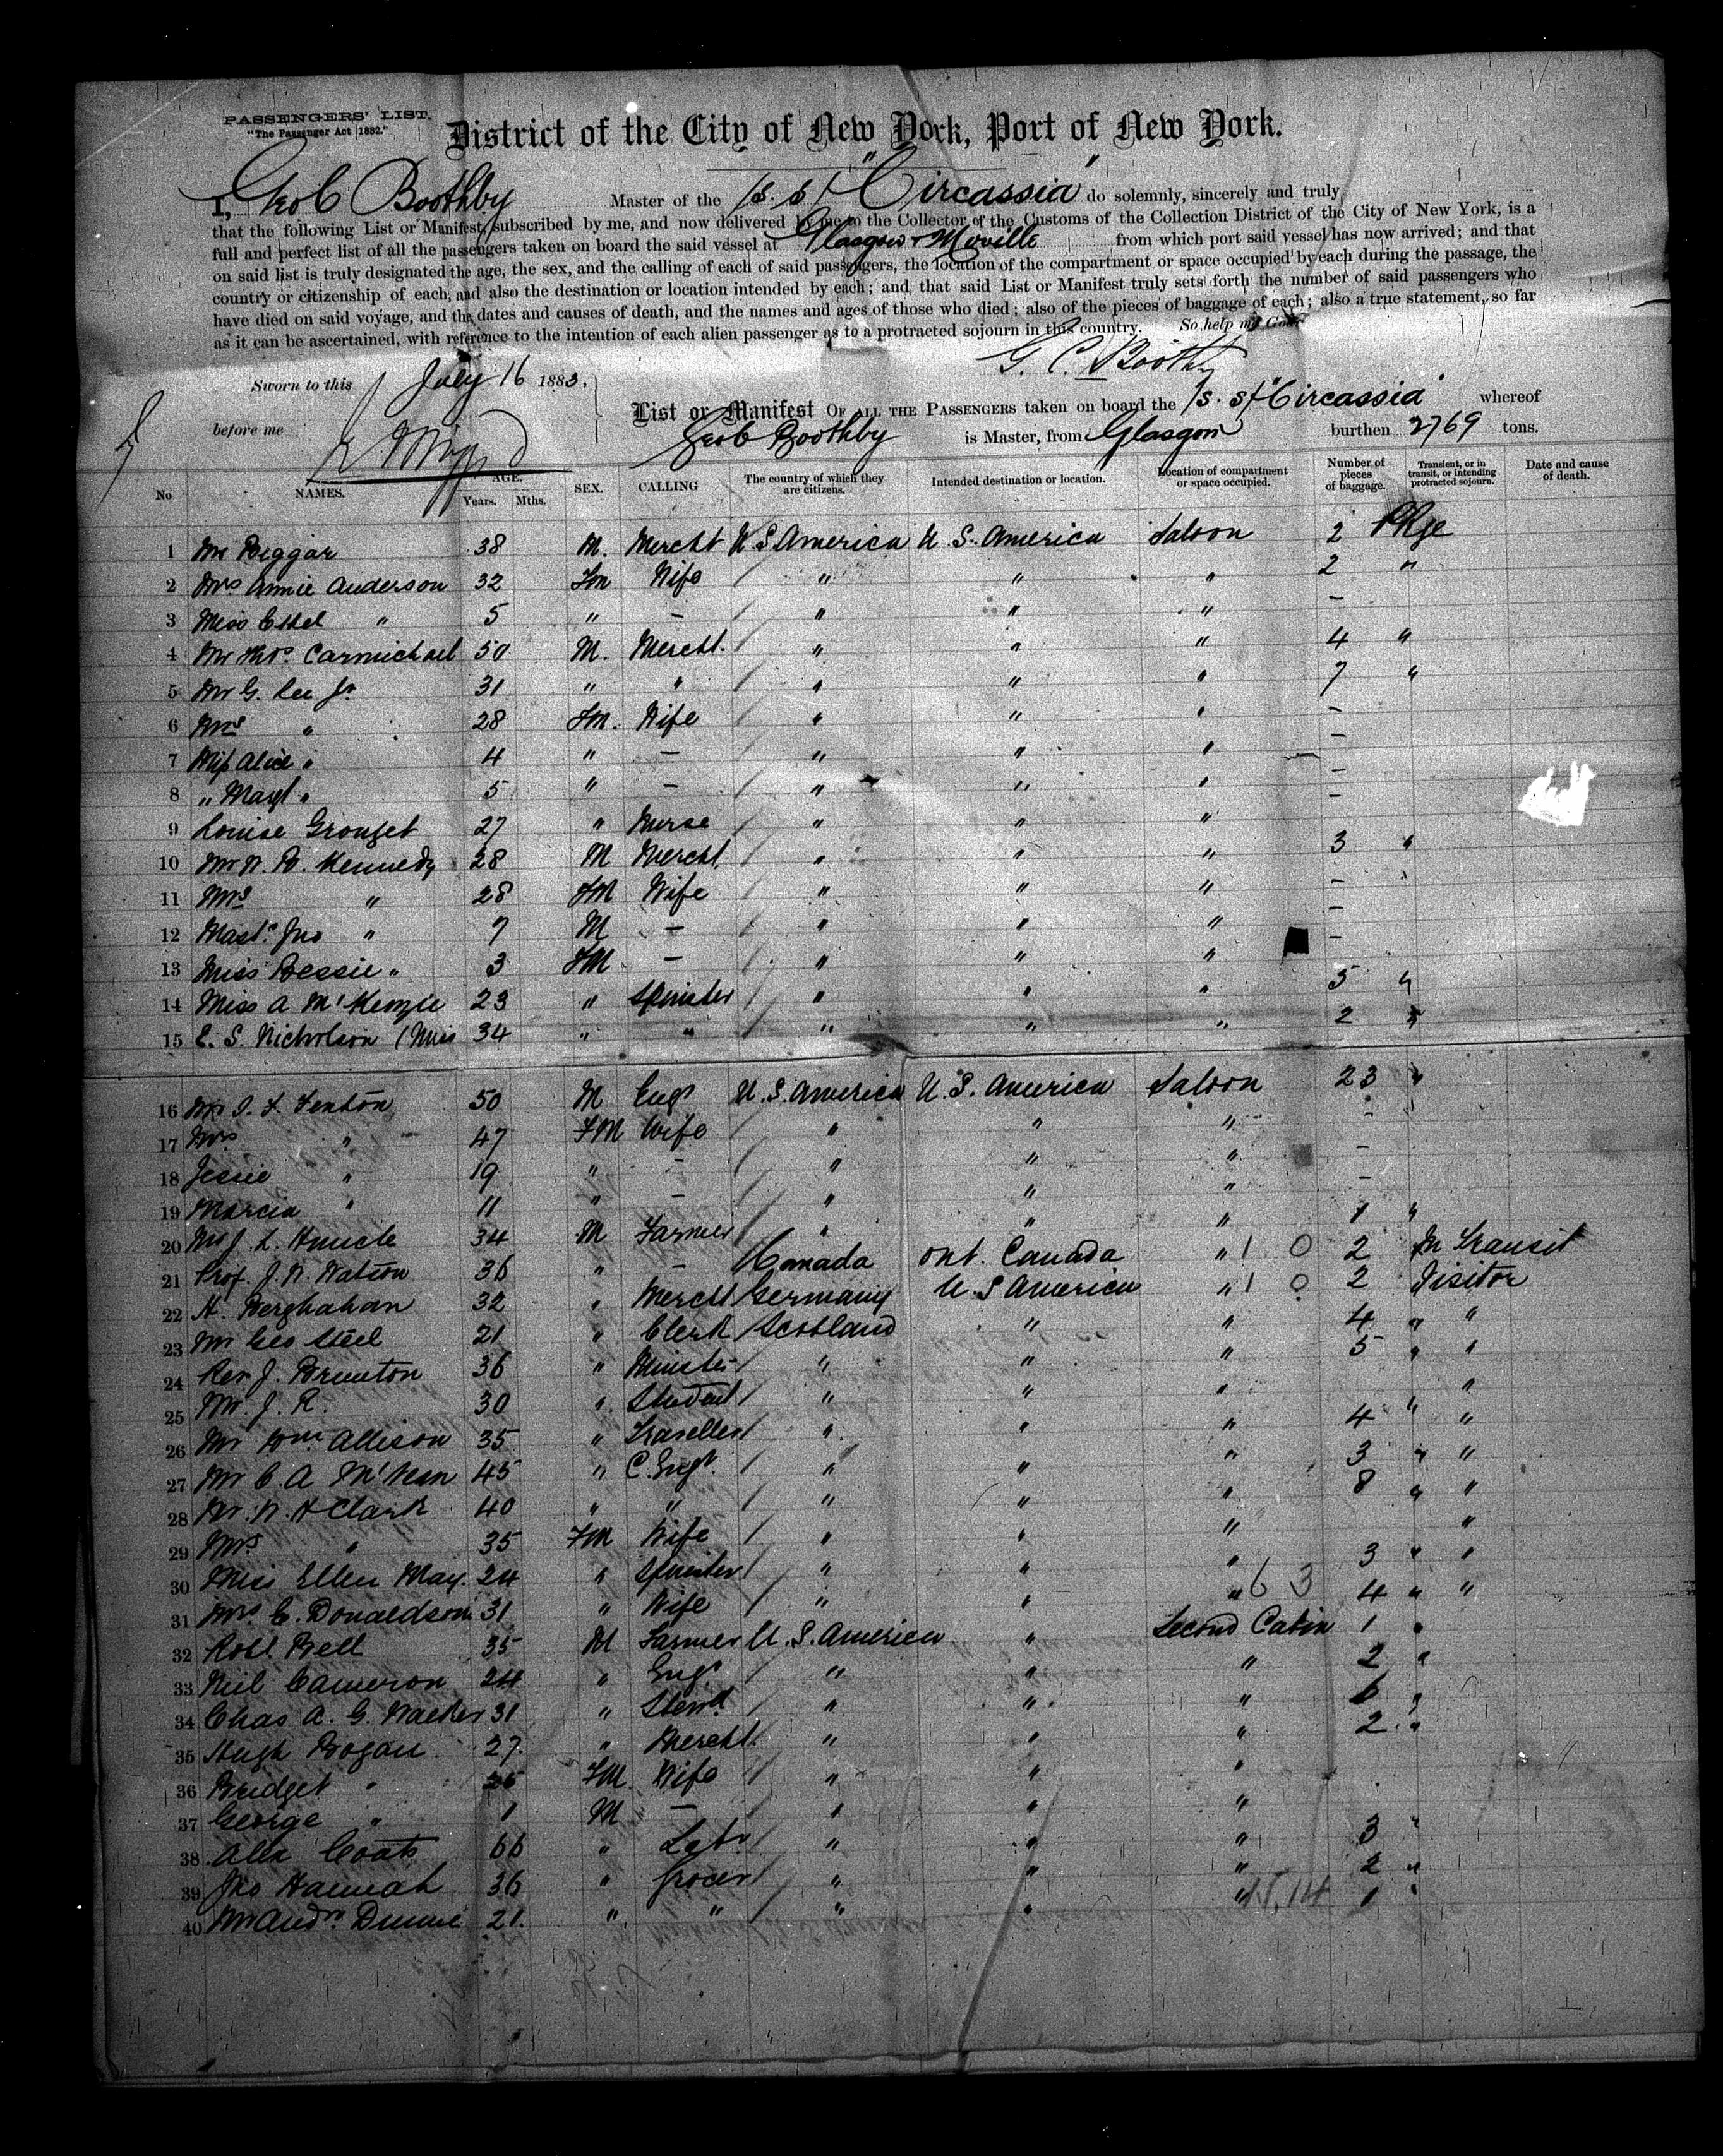 PASSENGERS' LIST.
"The Passenger Act 1882."
District of the City of New York, Port of New York.
I, Geo C Boothby Master of the (s.s) "Circassia" do solemnly, sincerely and truly
that the following List or Manifest, subscribed by me, and now delivered by me to the Collector of the Customs of the Collection District of the City of New York, is a
full and perfect list of all the passengers taken on board the said vessel at Glasgow & Moville from which port said vessel has now arrived; and that
on said list is truly designated the age, the sex, and the calling of each of said passengers, the location of the compartment or space occupied by each during the passage, the
country or citizenship of each, and also the destination or location intended by each; and that said List or Manifest truly sets forth the number of said passengers who
have died on said voyage, and the dates and causes of death, and the names and ages of those who died; also of the pieces of baggage of each; also a true statement, so far
as it can be ascertained, with reference to the intention of each alien passenger as to a protracted sojourn in this country. So help me God.
G. C. Boothby
Sworn to this July 16 1883,
before me
List or Manifest OF ALL THE PASSENGERS taken on board the (s.s) "Circassia" whereof
Geo C Boothby is Master, from Glasgow burthen 2769 tons.
No NAMES. AGE. Years. Mths. SEX. CALLING The country of which they are citizens. Intended destination or location. Location of compartment or space occupied. Number of pieces of baggage. Transient, or in transit, or intending protracted sojourn. Date and cause of death.
1 Mr Biggar 38 M. Mercht U S America U. S. America Saloon 2 Pkge
2 Mrs Annie Anderson 32 Fm Wife " " " 2 "
3 Miss Ethel " 5 " – " " " –
4 Mr Thos. Carmichael 50 M. Mercht. " " " 4 "
5 Mr G. Lee Jr 31 " " " " " 7 "
6 Mrs " 28 Fm. Wife " " " –
7 Miss Alice " 4 " – " " " –
8 " Magt " 5 " – " " " –
9 Louise 27 " Nurse " " " –
10 Mr W. B. Kennedy 28 M Mercht " " " 3 "
11 Mrs " 28 FM Wife " " " –
12 Mastr. Jno " 7 M – " " " –
13 Miss Bessie " 3 FM – " " " –
14 Miss A McKenzie 23 " Spinster " " " 5 "
15 E. S. Nicholson (Miss 34 " " " " " 2 "
16 Mr J. F. Fenton 50 M Engr U. S. America U. S. America Saloon 23 "
17 Mrs " 47 FM Wife " " " –
18 Jessie " 19 " – " " " –
19 Marcia " 11 " – " " " –
20 Mr J. L. 34 M Farmer " " " 1 "
21 Prof. J. W. Watson 36 " – Canada Ont. Canada " 1 0 2 In Transit
22 H. Berghahan 32 " Mercht Germany U S America " 1 0 2 Visitor
23 Mr Geo Steel 21 " Clerk Scotland " " 4 " "
24 Rev J. Brunton 36 " Minister " " " 5 " "
25 Mr. J. R. 30 " Student " " " "
26 Mr Wm Allison 35 " Traveller " " " 4 " "
27 Mr C. A McVean 45 " C. Engr. " " " 3 " "
28 Mr. W. H Clark 40 " " " " " 8 " "
29 Mrs " 35 FM Wife " " " "
30 Miss Ellen May. 24 " Spinster " " " 3 " "
31 Mrs C. Donaldson 31 " Wife " " " 6 3 4 " "
32 Robt. Bell 35 M Farmer U. S. America " Second Cabin 1 "
33 Neil Cameron 24 " Engr " " " 2 "
34 Chas A. G. Walker 31 " Stewd " " " 6 "
35 Hugh Bogan 27 " Mercht. " " " 2 "
36 Bridget " FM Wife " " "
37 George " 1 M – " " "
38 Alex Coats 66 " Labr " " " 3 "
39 Jno Hannah 36 " Grocer " " " 2 "
40 Mr Andw 21. " " " " " 14 1 "